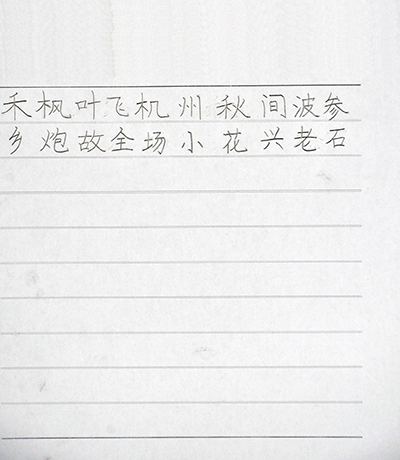 禾枫叶飞机州秋间波参
乡炮故全场小花兴老石